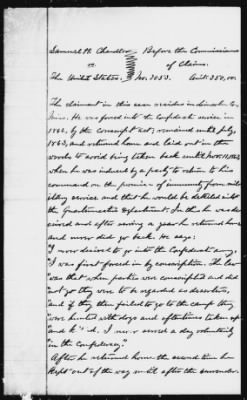 Samuel H. Chandler } Before the Commissioners
vs } of Claims.
The United States. } No. 3053. Amt. 350,00.
The claimant in this case resides in Lincoln Co.
Miss. He was forced into the Confederate service in
1862, by the conscript act, remained until July,
1863, and returned home and laid out in the
woods to avoid being taken back until Nov.
when he was induced by a party to return to his
command on the promise of immunity from mili-
tary service and that he would be detailed into
the Quartermaster Department. In this he was de-
ceived and after serving a year he returned home
and never did go back. He says:
"I never desired to go into the Confederate army,
"I was first forced in by conscription. The law
"was that when parties were conscripted and did
"not go they were to be regarded as deserters,
"and if they then failed to go to the camp they
"were hunted with dogs and oftentimes taken up
"and k'd. I never served a day voluntarily
"in the Confederacy."
After he returned home the second time he
kept out of the way until after the surrender.